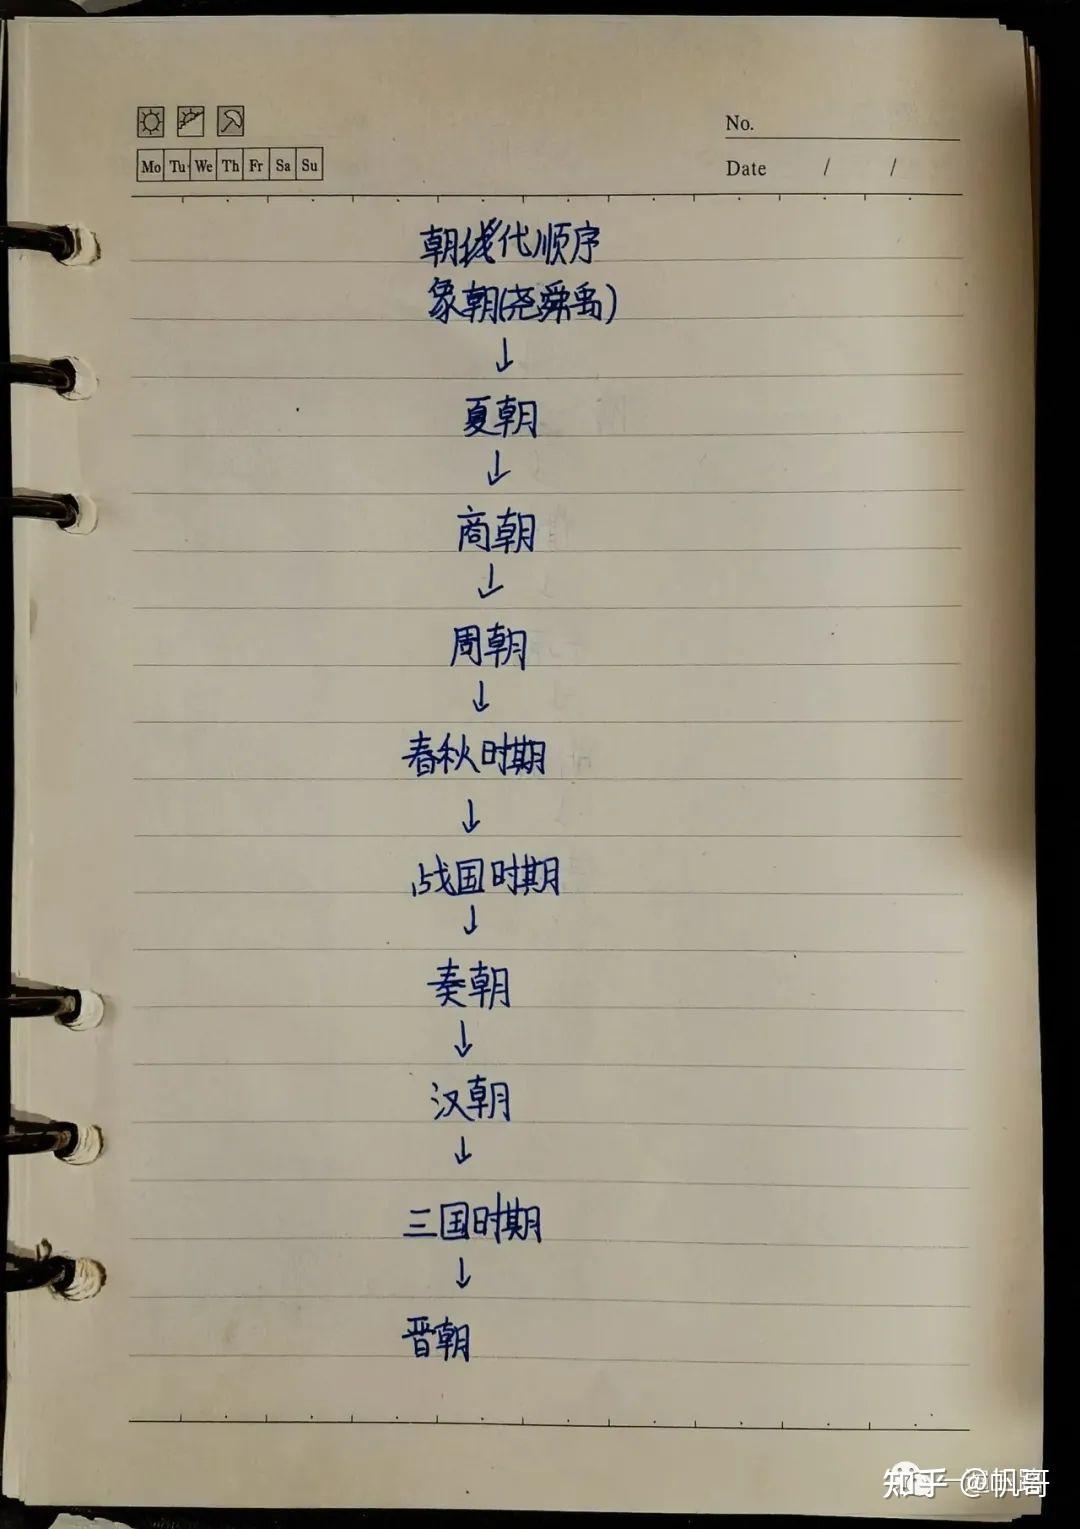 No.
Mo Tu We Th Fr Sa Su
Date / /
朝代顺序
象朝(尧舜禹)
↓
夏朝
↓
商朝
↓
周朝
↓
春秋时期
↓
战国时期
↓
秦朝
↓
汉朝
↓
三国时期
↓
晋朝
知乎 @帆哥